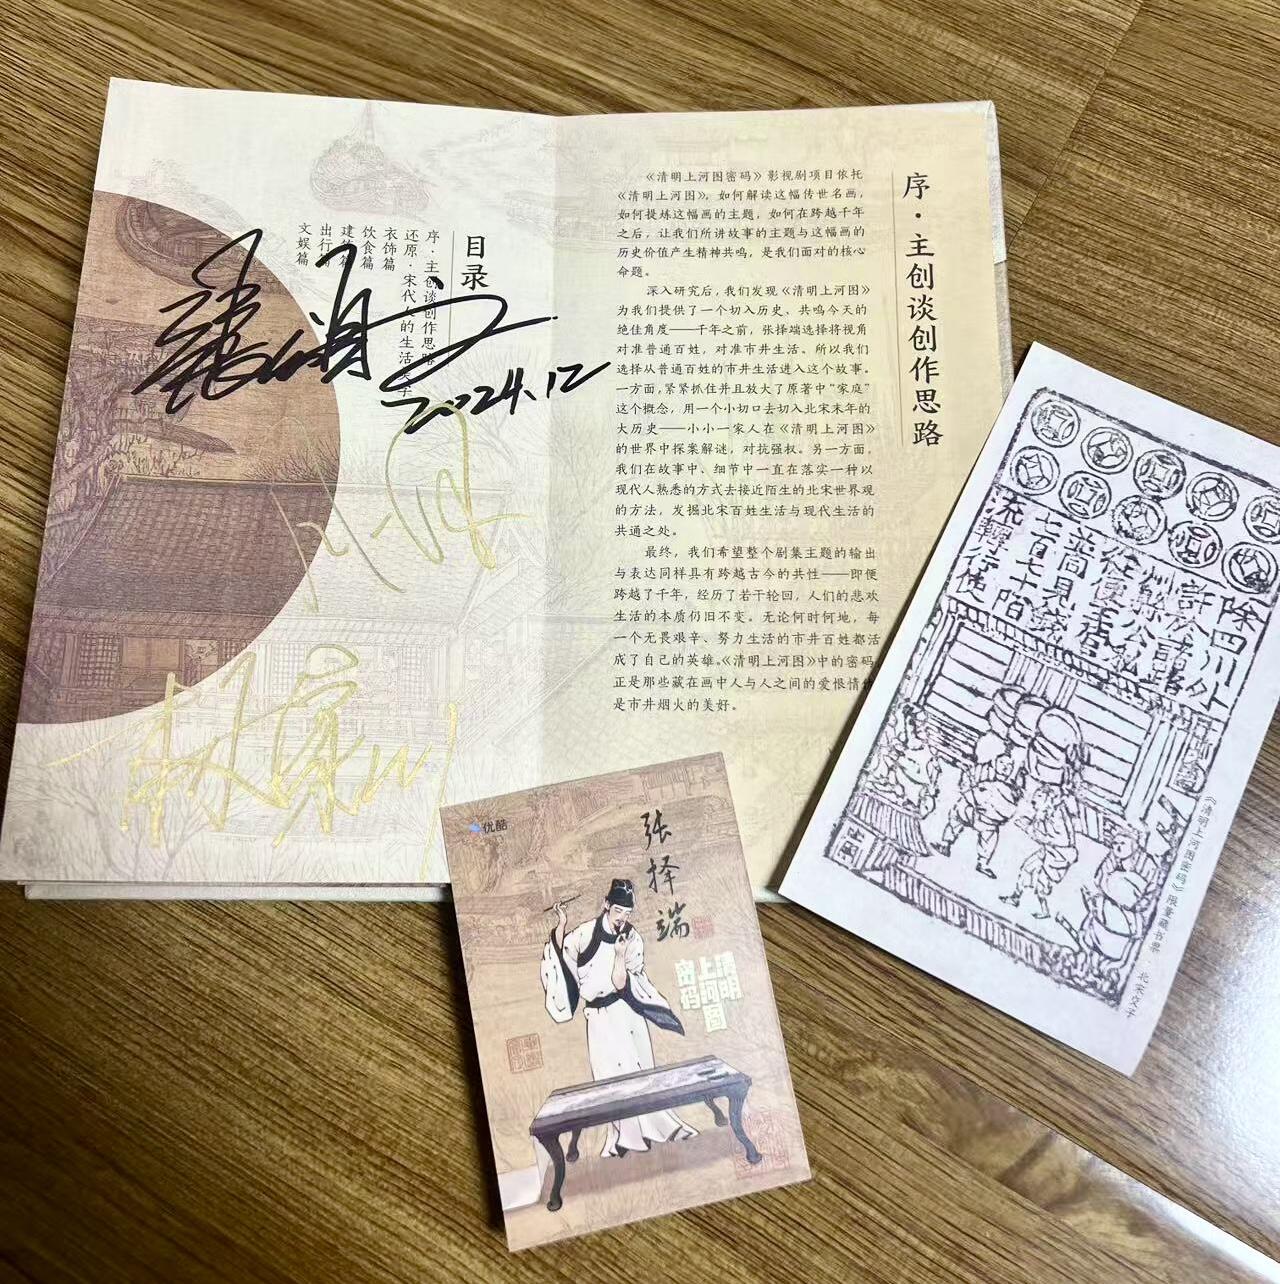 目录
序·主创谈创作思路
还原·宋代人的生活美学
衣饰篇
饮食篇
出行篇
文娱篇
2024.12
序·主创谈创作思路
《清明上河图密码》影视剧项目依托
《清明上河图》，如何解读这幅传世名画，
如何提炼这幅画的主题，如何在跨越千年
之后，让我们所讲故事的主题与这幅画的
历史价值产生精神共鸣，是我们面对的核心
命题。
深入研究后，我们发现《清明上河图》
为我们提供了一个切入历史、共鸣今天的
绝佳角度——千年之前，张择端选择将视角
对准普通百姓，对准市井生活。所以我们
选择从普通百姓的市井生活进入这个故事。
一方面，紧紧抓住并且放大了原著中“家庭”
这个概念，用一个小切口去切入北宋末年的
大历史——小小一家人在《清明上河图》
的世界中探案解谜，对抗强权。另一方面，
我们在故事中、细节中一直在落实一种以
现代人熟悉的方式去接近陌生的北宋世界观
的方法，发掘北宋百姓生活与现代生活的
共通之处。
最终，我们希望整个剧集主题的输出
与表达同样具有跨越古今的共性——即便
跨越了千年，经历了若干轮回，人们的悲欢
生活的本质仍旧不变。无论何时何地，每
一个无畏艰辛、努力生活的市井百姓都活
成了自己的英雄。《清明上河图》中的密码
正是那些藏在画中人与人之间的爱恨情
是市井烟火的美好。
优酷
张择端
清明
上河图
密码
除四川外
許於諸路
州縣公私
從便主管
並同見錢
七百七十陌
流轉行使
《清明上河图密码》限量藏书票 北宋交子